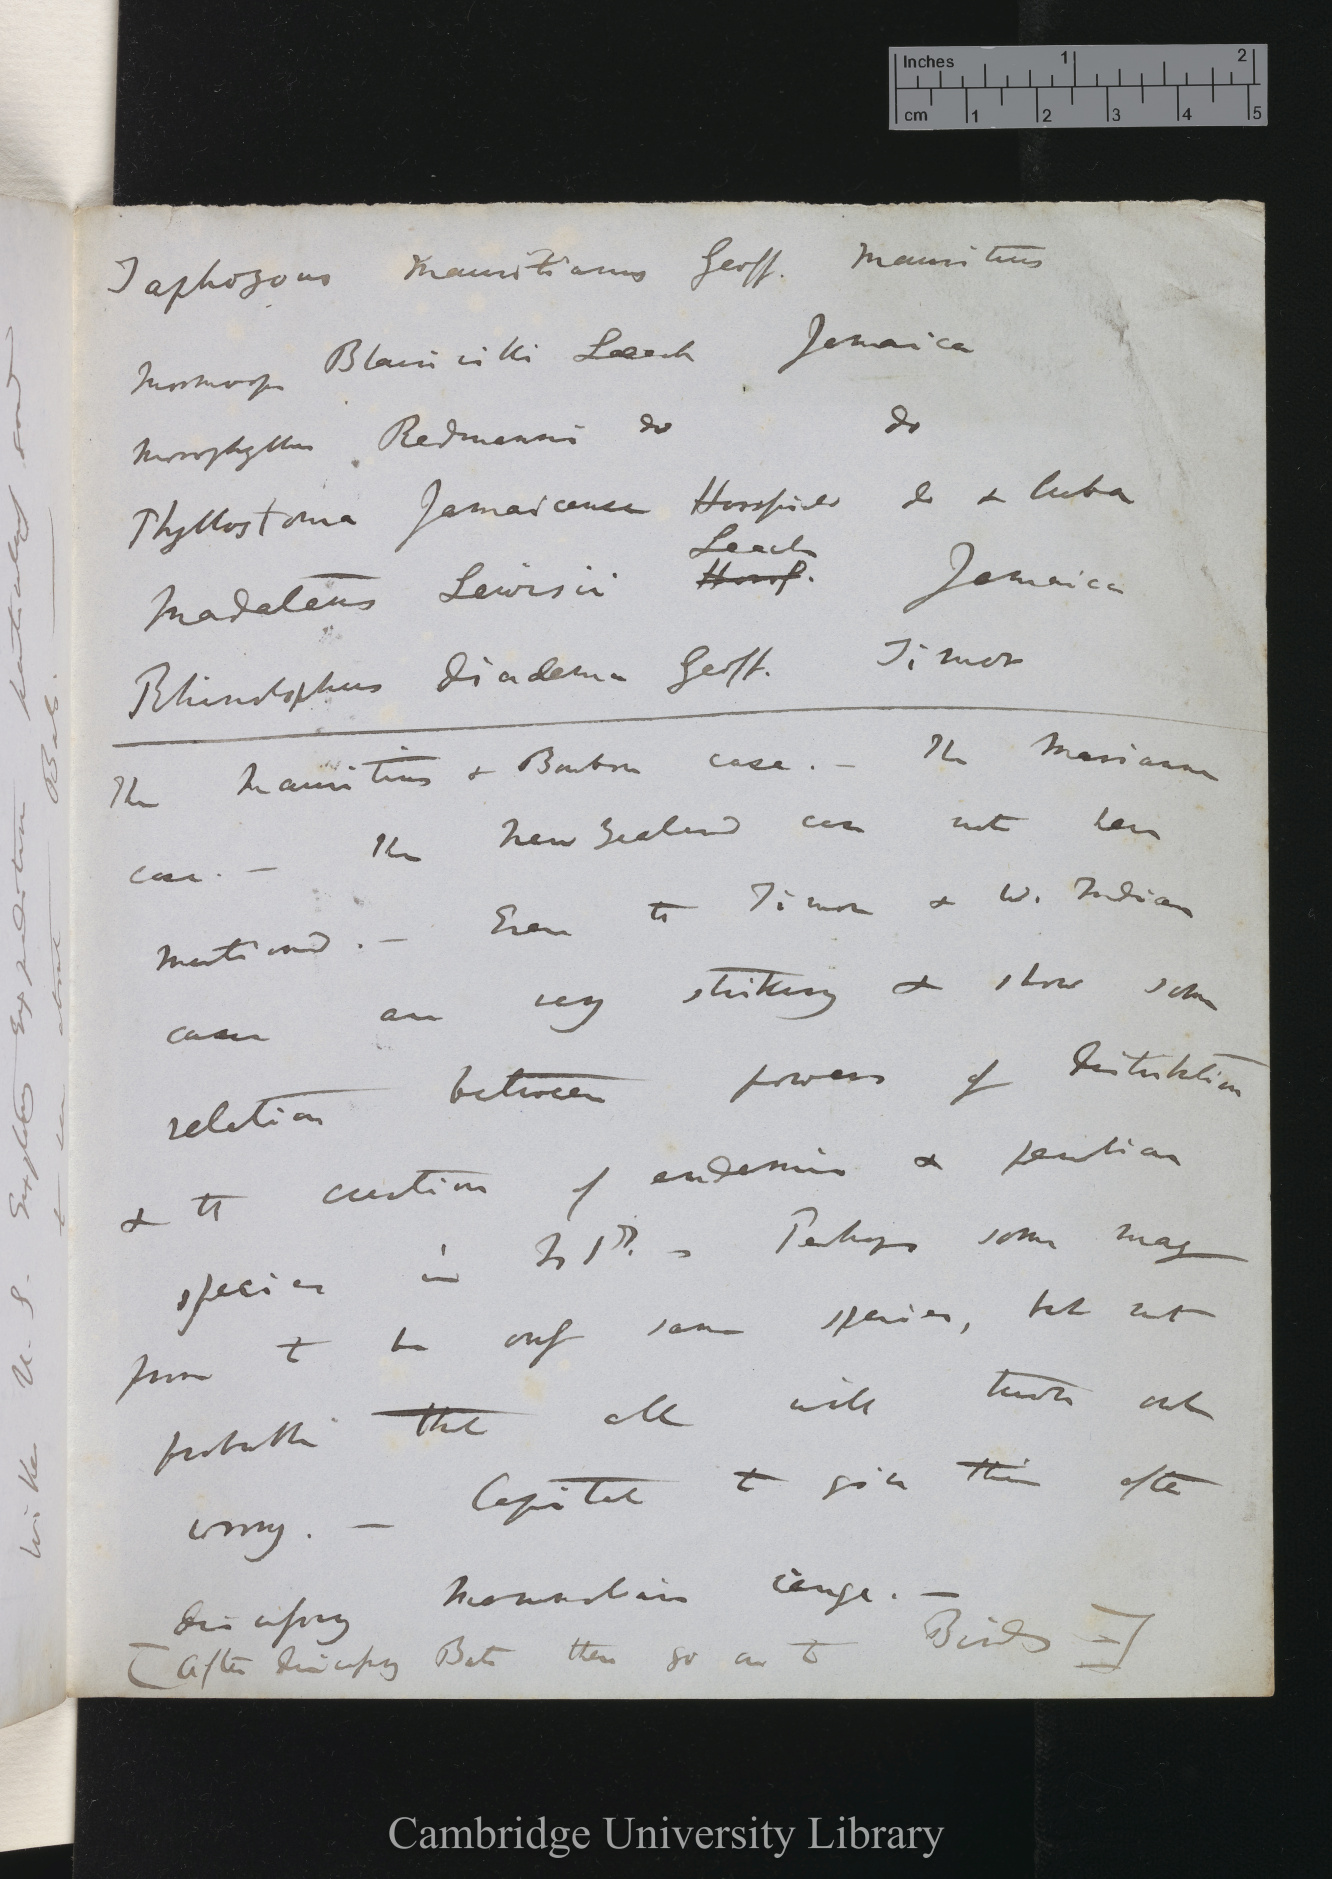 Inches 1 2
cm 1 2 3 4 5
Taphozous Mauritianus Geoff. Mauritius
Mormoops Blainvilli Leach Jamaica
Monophyllus Redmanni do do
Phyllostoma Jamaicense Horsfield do & Cuba
Leach
Madataeus Lewisii Horsf. Jamaica
Rhinolophus diadema Geoff. Timor
The Mauritius & Bourbon case. — The Marianne
case. — The New Zealand case not here
mentioned. — Even the Timor & W. Indian
cases are very striking & show some
relation between powers of distribution
& the creation of endemic & peculiar
species in Isd. — Perhaps some may
prove to be only same species, but not
probable that all will turn out
wrong. — Capital to give this after
discussing Mammalian range. —
[After discussing Bats then go on to Birds —]
Wilkes U. S. Exploring Expedition
to see about Bats.
Cambridge University Library